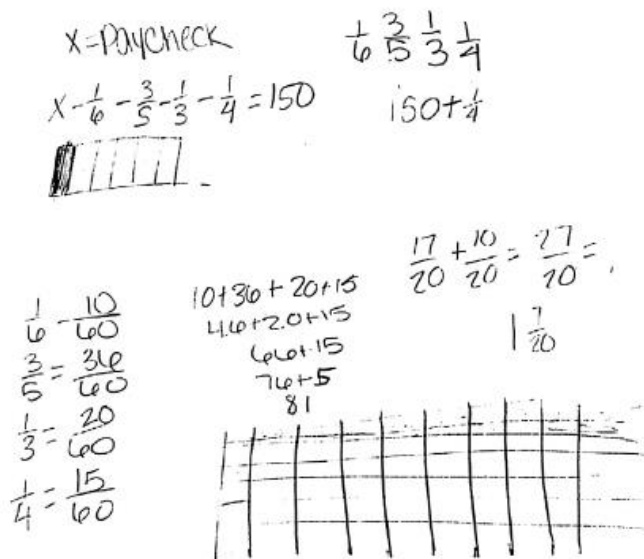 x=Paycheck
1/6 3/5 1/3 1/4
x - 1/6 - 3/5 - 1/3 - 1/4 = 150
150+1/4
17/20 + 10/20 = 27/20 =
1 7/20
1/6 - 10/60
3/5 = 36/60
1/3 = 20/60
1/4 = 15/60
10+36+20+15
46+20+15
66+15
76+5
81